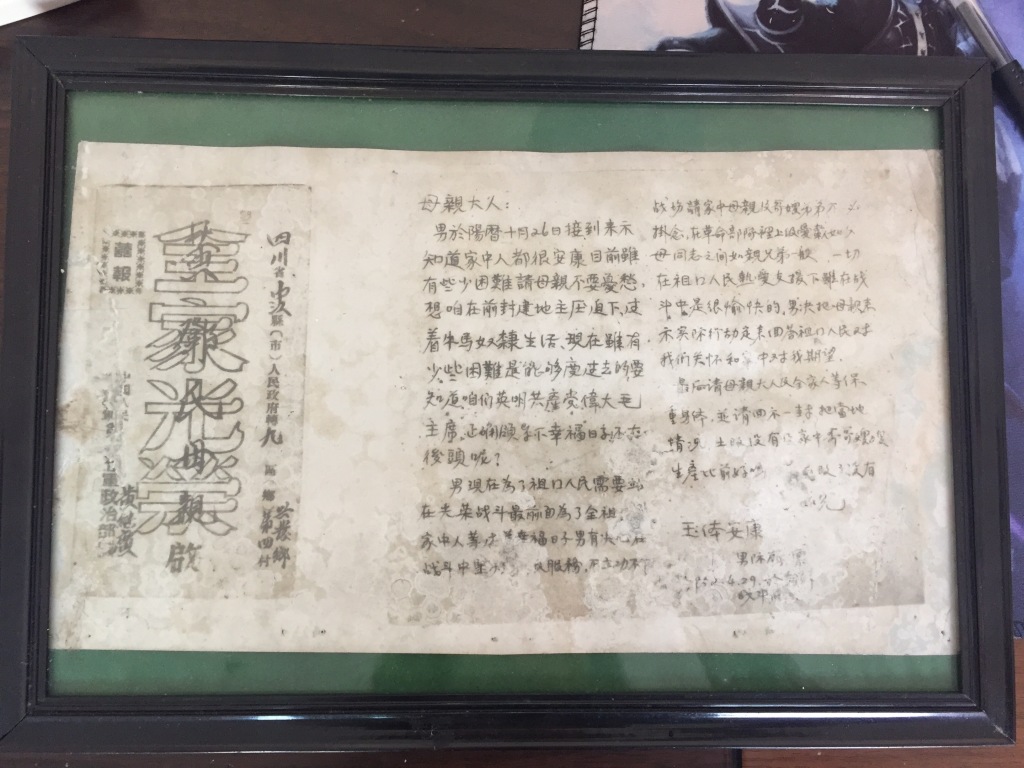 四川省中江縣(市)人民政府轉九區(鄉)
第四村
全家光榮
母親 啟
黃繼廣
母親大人:
男於陽曆十月26日接到來示
知道家中人都很安康目前雖
有些少困難請母親不要憂愁,
想咱在前封建地主压迫下,过
着牛馬奴隸生活、现在雖有
少些困難是能够度过去的要
知道咱们英明共產党偉大毛
主席,正确領导下幸福日子还在
後頭呢?
男现在為了祖囗人民需要站
在光荣战斗最前面為了全祖
家中人等 幸福日子男有决心在
战斗中 服務,不立功不
战场請家中母親及哥嫂 弟不必
掛念,在革命部隊裡上级愛戴如父
母同志之间如親兄弟一般 一切
在祖囗人民熱愛支援下雖在战
斗中是很愉快的,男决把母親來
示实际行动是來回答祖囗人民对
我们关怀和家中对我期望.
最后请母親大人及全家人等保
重身体,並请回示一封把當地
情况 土改没有 家中哥哥嫂嫂
生產比前好嗎 没有
玉体安康